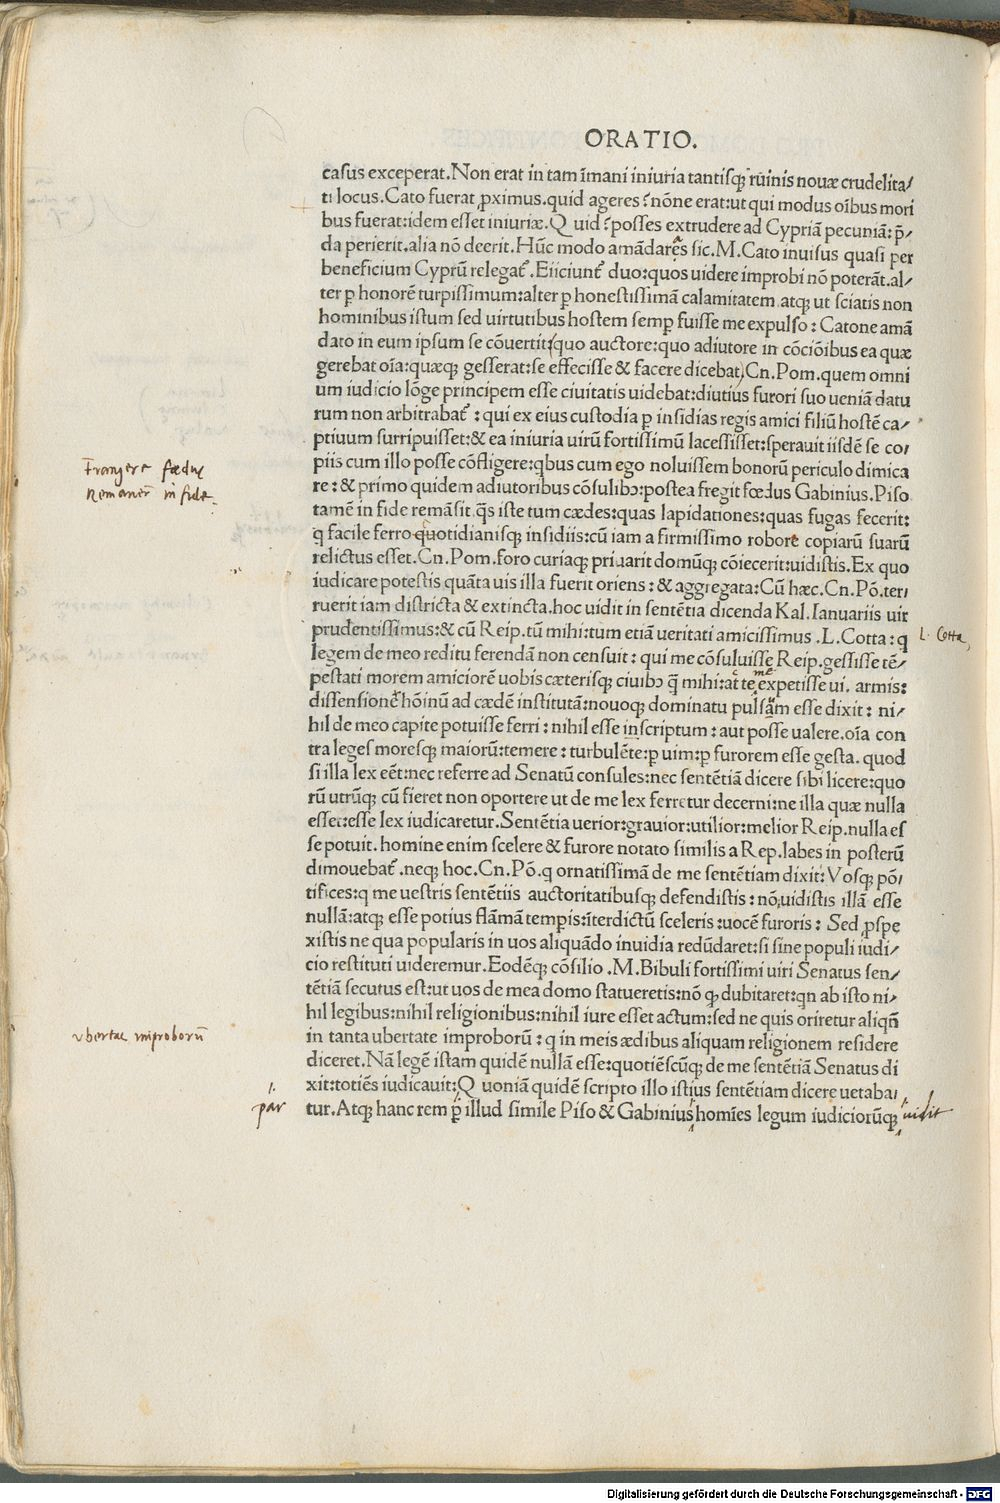 ORATIO.
casus exceperat. Non erat in tam īmani iniuria tantisq; ruinis nouæ crudelita⸗
ti locus. Cato fuerat ꝓximus. quid ageres? nōne erat: ut qui modus oībus mori
bus fuerat: idem esset iniuriæ. Quid? posses extrudere ad Cypriā pecuniā: p̄⸗
da perierit. alia nō deerit. Hūc modo amādares sic. M. Cato inuisus quasi per
beneficium Cyprū relegat̃. Eiiciunt̃ duo: quos uidere improbi nō poterāt. al⸗
ter ꝑ honorē turpissimum: alter ꝑ honestissimā calamitatem. atq; ut sciatis non
hominibus istum sed uirtutibus hostem semꝑ fuisse me expulso: Catone amā
dato in eum ipsum se cōuertit: (quo auctore: quo adiutore in cōciōibus ea quæ
gerebat oīa: quæq; gesserat: se effecisse & facere dicebat) Cn. Pom. quem omni
um iudicio lōge principem esse ciuitatis uidebat: diutius furori suo ueniā datu
rum non arbitrabat̃: qui ex eius custodia ꝑ insidias regis amici filiū hostē ca⸗
ptiuum surripuisset: & ea iniuria uirū fortissimū lacessisset: sperauit iisdē se co⸗
piis cum illo posse cōfligere: qbus cum ego noluissem bonorū periculo dimica
re: & primo quidem adiutoribus cōsulibꝫ: postea fregit fœdus Gabinius. Piso
Frangere fœdus
Remanere in fide.
tamē in fide remāsit. q̄s iste tum cædes: quas lapidationes: quas fugas fecerit:
q̄ facile ferro quotidianisq; insidiis: cū iam a firmissimo robore copiarū suarū
relictus esset. Cn. Pom. foro curiaq; priuarit domūq; cōiecerit: uidistis. Ex quo
iudicare potestis quāta uis illa fuerit oriens: & aggregata: Cū hæc. Cn. Pō. ter⸗
ruerit iam districta & extincta. hoc uidit in sentētia dicenda Kal. Ianuariis uir
prudentissimus: & cū Reip. tū mihi: tum etiā ueritati amicissimus. L. Cotta: q
L. Cotta
legem de meo reditu ferendā non censuit: qui me cōsuluisse Reip. gessisse tē⸗
pestati morem amiciorē uobis cæterisq; ciuibꝫ q̄ mihi: at te expetisse ui. armis:
c me
dissensionē hōinū ad cædē institutā: nouoq; dominatu pulsam esse dixit: ni⸗
hil de meo capite potuisse ferri: nihil esse inscriptum: aut posse ualere. oīa con
tra leges moresq; maiorū: temere: turbulēte: ꝑ uim: ꝑ furorem esse gesta. quod
si illa lex eēt: nec referre ad Senatū consules: nec sentētiā dicere sibi licere: quo
rū utrūq; cū fieret non oportere ut de me lex ferretur decerni: ne illa quæ nulla
esset: esse lex iudicaretur. Sentētia uerior: grauior: utilior: melior Reip. nulla es
se potuit. homine enim scelere & furore notato similis a Rep. labes in posterū
dimouebat̃. neq; hoc. Cn. Pō. q ornatissimā de me sentētiam dixit: Vosq; pō⸗
tifices: q me uestris sentētiis auctoritatibusq; defendistis: nō uidistis illā esse
nullā: atq; esse potius flāmā tempis: īterdictū sceleris: uocē furoris: Sed ꝓspe
xistis ne qua popularis in uos aliquādo inuidia redūdaret: si sine populi iudi⸗
cio restituti uideremur. Eodēq; cōsilio. M. Bibuli fortissimi uiri Senatus sen⸗
tētiā secutus est: ut uos de mea domo statueretis: nō q; dubitaret: qn ab isto ni⸗
hil legibus: nihil religionibus: nihil iure esset actum: sed ne quis oriretur aliqñ
in tanta ubertate improborū: q in meis ædibus aliquam religionem residere
vbertas improborū
diceret. Nā legē istam quidē nullā esse: quotiēscūq; de me sentētiā Senatus di
xit: totiēs iudicauit: Quoniā quidē scripto illo istius sentētiam dicere uetaba⸗
tur. Atq; hanc rem p̄ illud simile Piso & Gabinius homīes legum iudiciorūq;
par
uidit
Digitalisierung gefördert durch die Deutsche Forschungsgemeinschaft - DFG